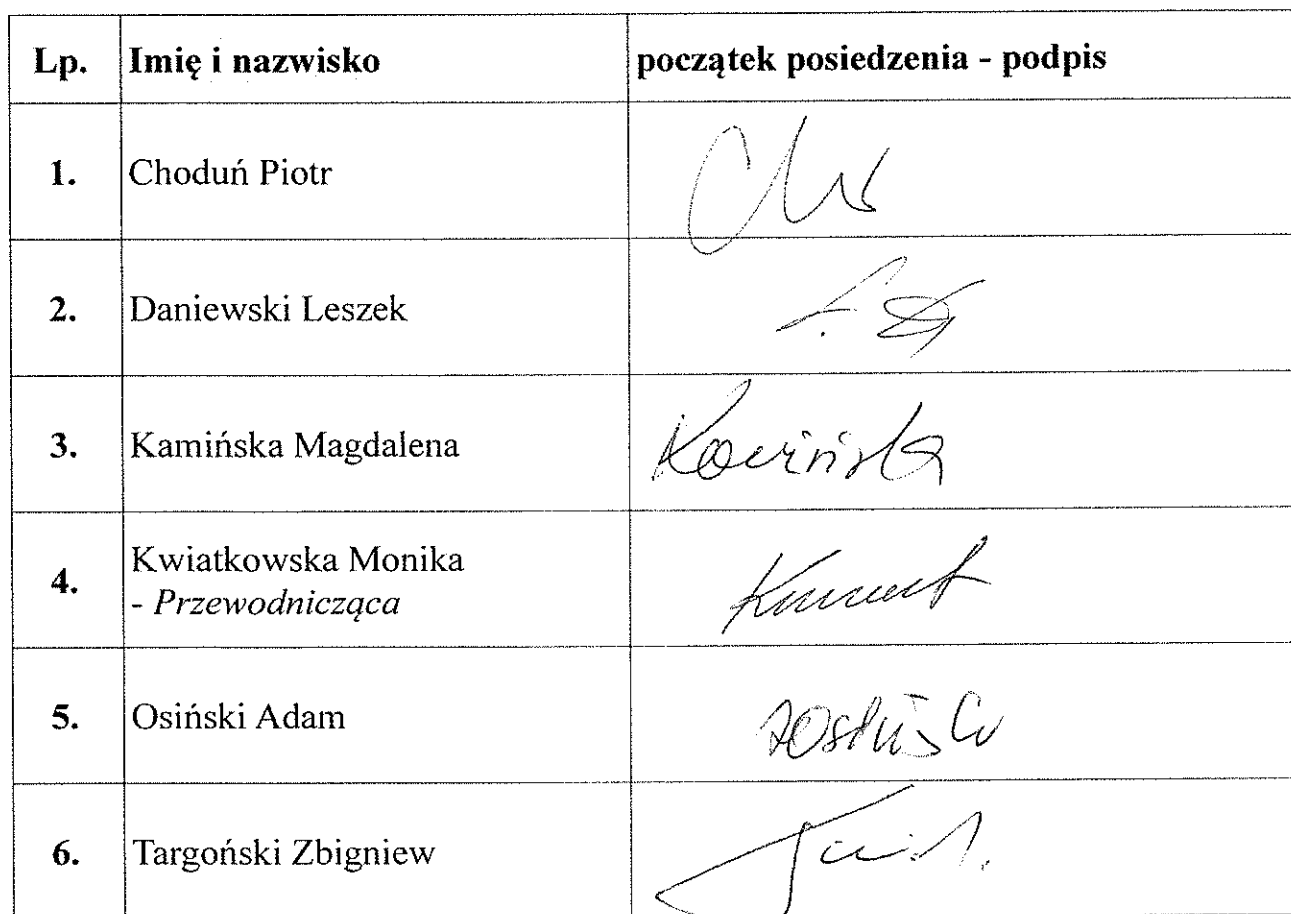 Lp. Imię i nazwisko początek posiedzenia - podpis
1. Choduń Piotr
2. Daniewski Leszek
3. Kamińska Magdalena Kamińska
4. Kwiatkowska Monika
- Przewodnicząca
5. Osiński Adam
6. Targoński Zbigniew